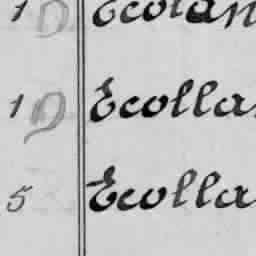 1 D Ecolan
1 D Ecolla
5 Ecolla